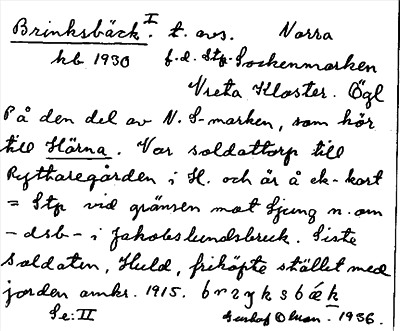 Brinksbäck. I t. avs. Norra
hb 1930 f.d. Stp. Sockenmarken
Vreta Kloster. Ögl
På den del av N. S-marken, som hör
till Härna. Var soldattorp till
Ryttaregården i H. och är å ek-kort
= Stp vid gränsen mot Ljung n. om
-dsb- i Jakobslundsbruk. Siste
soldaten, Huld, friköpte stället med
jorden omkr. 1915. brzyksbæk
Se: II Gustaf Olsson. 1936.